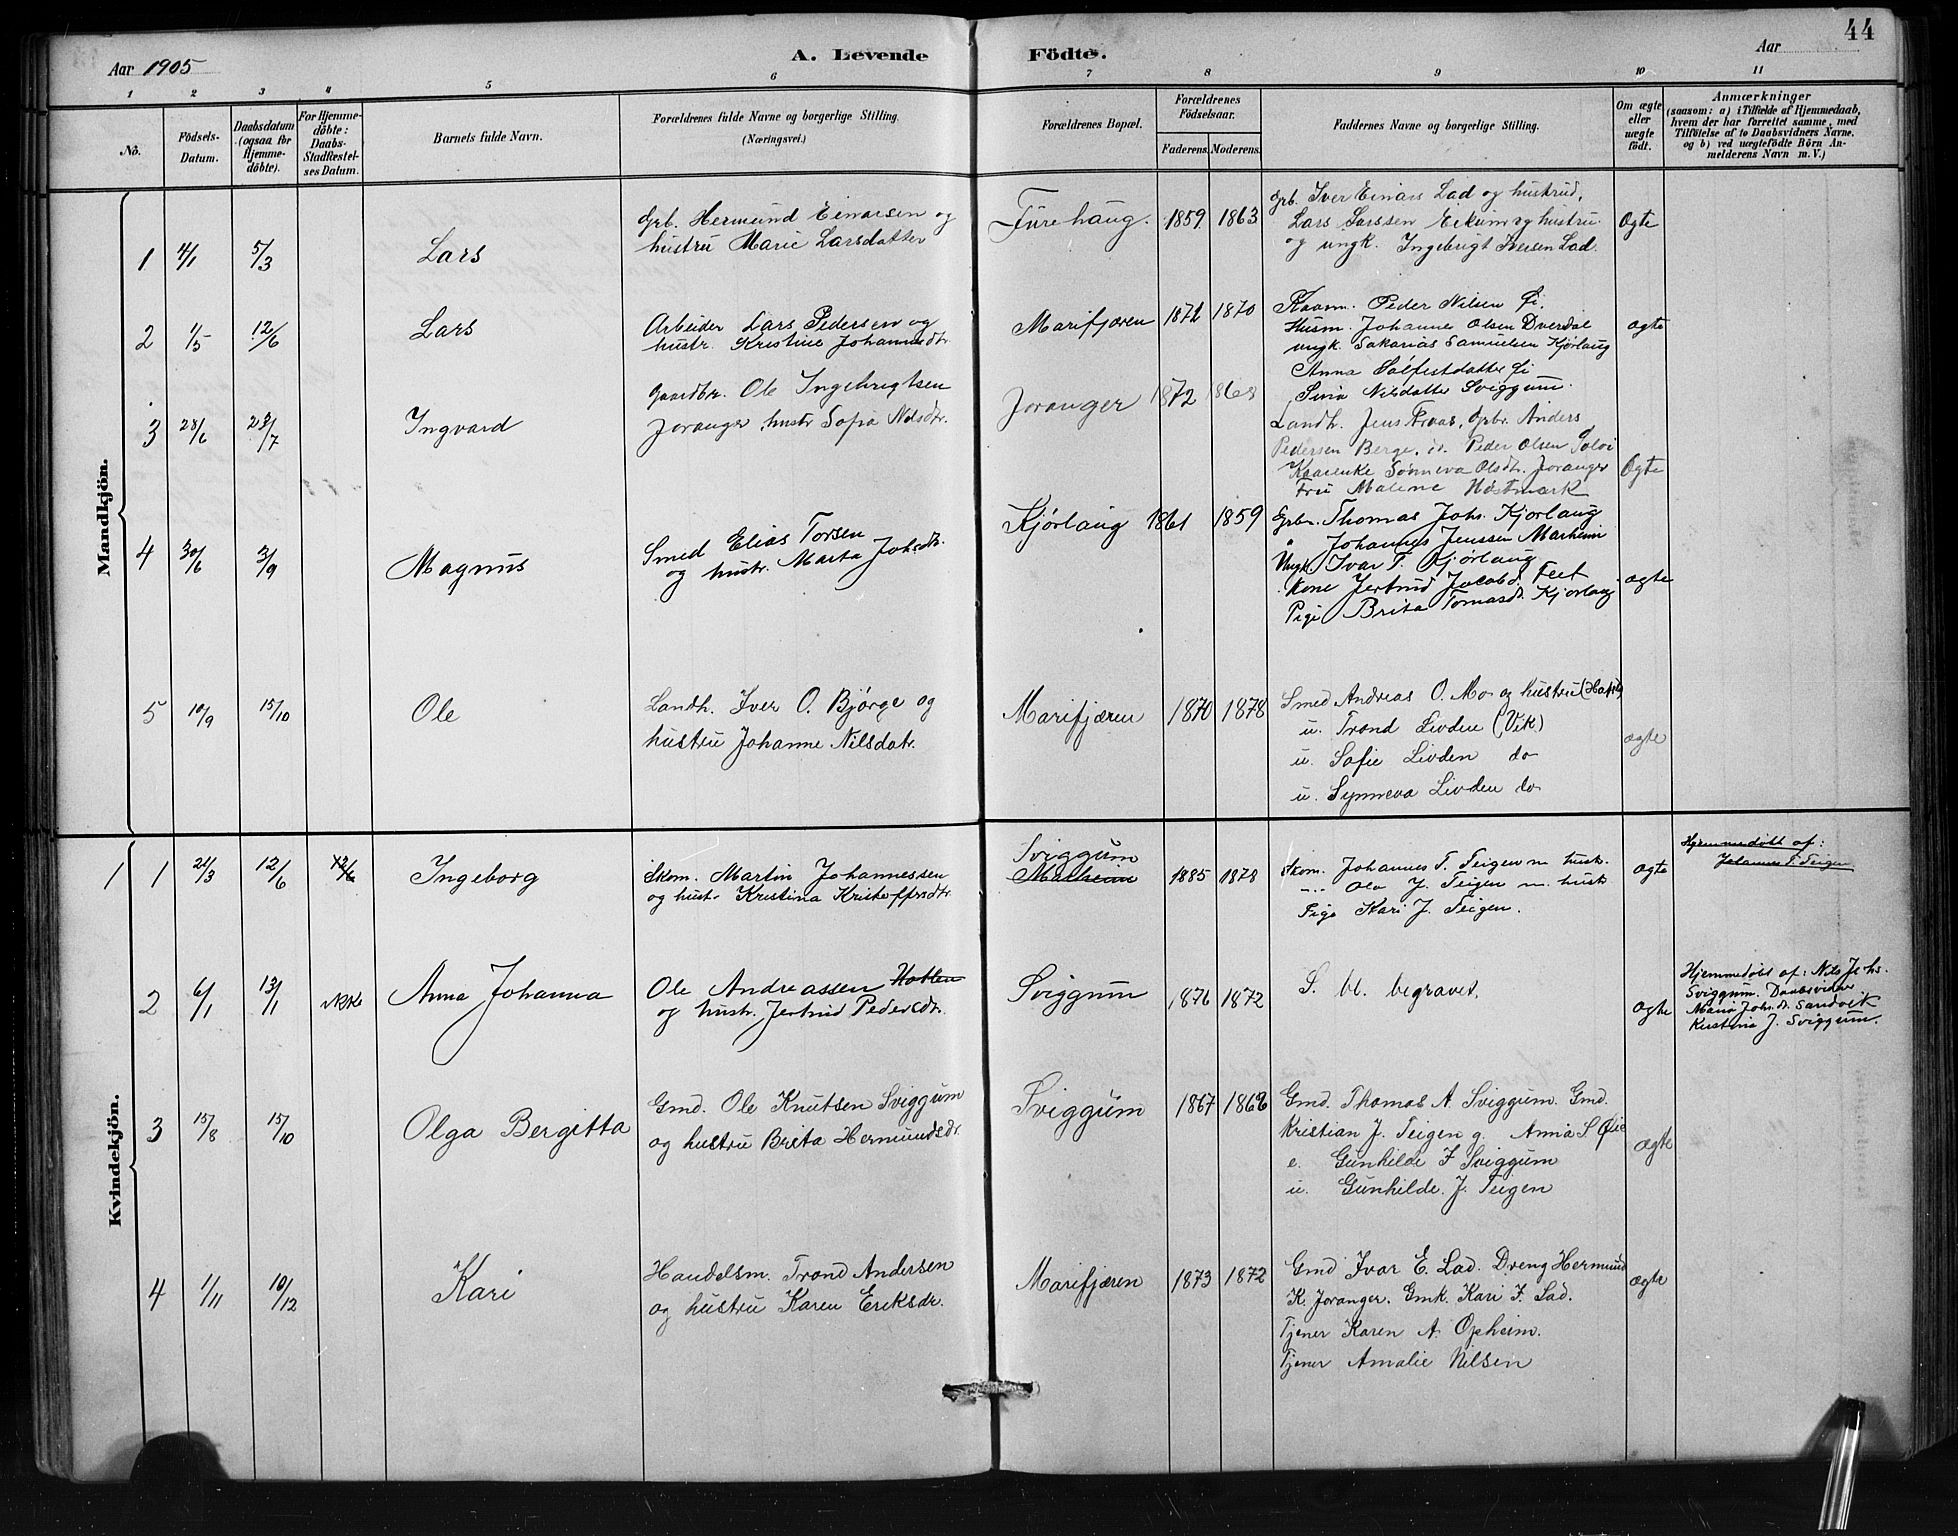 44
A. Levende Födte.
Aar 1905
Aar
1 2 3 4 5 6 7 8 9 10 11
No.
Födsels-
Datum.
Daabsdatum
(ogsaa for
Hjemme-
döbte).
For Hjemme-
döbte:
Daabs-
Stadfæstel-
ses Datum.
Barnets fulde Navn.
Forældrenes fulde Navne og borgerlige Stilling.
(Næringsvei.)
Forældrenes Bopæl.
Forældrenes
Födselsaar.
Faderens. Moderens.
Faddernes Navne og borgerlige Stilling.
Om ægte
eller
uægte
födt.
Anmærkninger
(saasom: a) i Tilfælde af Hjemmedaab,
hvem der har forrettet samme, med
Tilföielse af to Daabsvidners Navne.
og b) ved uægtefödte Börn An-
melderens Navn m. V.)
Mandkjön.
1 4/1 5/3 Lars
Grb. Hermund Einarsen og
hustru Marie Larsdatter
Fürehaug. 1859. 1863
Grb. Iver Einars Lad og hustrud,
Lars Larssen Eikum og hustru
og ungk. Ingebrigt Iversen Lad.
Ogte
2 1/5 12/6 Lars
Arbeider Lars Pedersen og
hustr. Kristine Johannesdtr.
Marifjæren 1872 1870
Kaarm. Peder Nilsen Øi.
Husm. Johannes Olsen Dverdal
ungk. Sakarias Samuelsen Kjørlaug
Anna Sølfestdatter Øi
Sina Nilsdatter Sviggum.
ogte
3 28/6 23/7 Ingvard
Gaardbr. Ole Ingebrigtsen
Joranger hustr Sofia Nilsdtr.
Joranger 1872 1868
Landh. Jens Kraas, Grbr. Anders
Pedersen Berge, Peder Olsen Solvi
Kaarenke Sønneva Olsdtr. Joranger
Fru Malene Høstmark
Ogte
4 30/6 3/9 Magnus
Smed Elias Torsen
og hustr. Marta Johsdtr.
Kjørlaug 1861 1859
Grbr. Thomas Johs. Kjørlaug
" Johannes Jenssen Marheim
Ungk. Ivar T. Kjørlaug
Kone Jertrud Jacobd. Feet
Pige Brita Tomasdt. Kjørlaug
ægte
5 10/9 15/10 Ole
Landh. Iver O. Bjørge og
hustru Johanne Nilsdatr.
Marifjæren 1870 1878
Smed Andreas O. Mo og hustru (Hafslo)
u. Trond Livden (Vik)
u. Sofie Livden do
u. Synneva Livden do
ægte
Kvindekjön.
1 1 21/3 12/6 12/6 Ingeborg
Skom. Martin Johannessen
og hustr Kristina Kristoffersdtr.
Sviggum
Marheim
1885 1878
Skom. Johannes T. Teigen m hustr.
" Ola J. Teigen m. hustr
Pige Kari J. Teigen.
ogte
Hjemmedøbt af:
Johannes T. Teigen
2 6/1 13/1 ikke Anna Johanna
Ole Andreassen Hatlen
og hustr. Jertrud Pedersdtr.
Sviggum 1876 1872
S. bl. begravet.
ogte
Hjemmedøbt af: Nils Johs.
Sviggum. Daabsvidner
Maria Johs. dt. Sandvik
Kristina J. Sviggum.
3 15/8 15/10 Olga Bergitta
Gmd. Ole Knutsen Sviggum
og hustru Brita Hermundsdr.
Sviggum 1867 1868
Gmd. Thomas A. Sviggum. Gmd.
Kristian J. Teigen g. Anna S Øie
e. Gunhilde J Sviggum
u. Gunhilde. J. Teigen
ægte
4 1/11 10/12 Kari
Handelsm. Trond Andersen
og hustru Karen Eriksdr.
Marifjæren 1873 1872
Gmd Ivar E. Lad. Dreng Hermund
K. Joranger. Gmk. Kari J. Lad.
Tjener Karen A. Opheim.
Tjener Amalie Nilsen
ægte